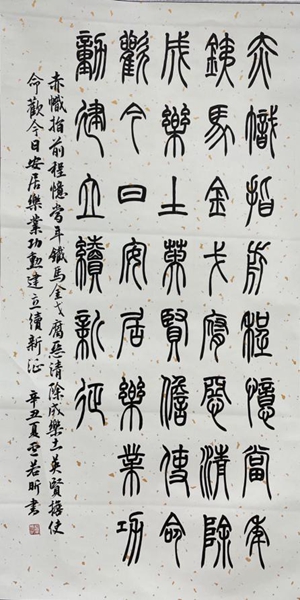 赤幟指前程憶當年
銕馬金戈腐惡清除
成樂土英賢擔使命
歡今日安居樂業功
勳建立續新征
赤幟指前程憶當年鐵馬金戈腐惡清除成樂土英賢擔使
命歡今日安居樂業功勳建立續新征 辛丑夏 若昕書